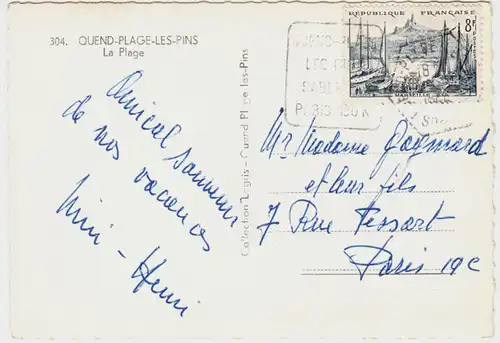 304. QUEND-PLAGE-LES-PINS
La Plage
Amical souvenir
de nos vacances
Mimi - Henri
Collection Legris - Quend Plage les-Pins
REPUBLIQUE FRANÇAISE
8F
MARSEILLE
PARIS 180 K
Mr Madame Goymard
et leur fils
7 Rue Tessart
Paris 19e